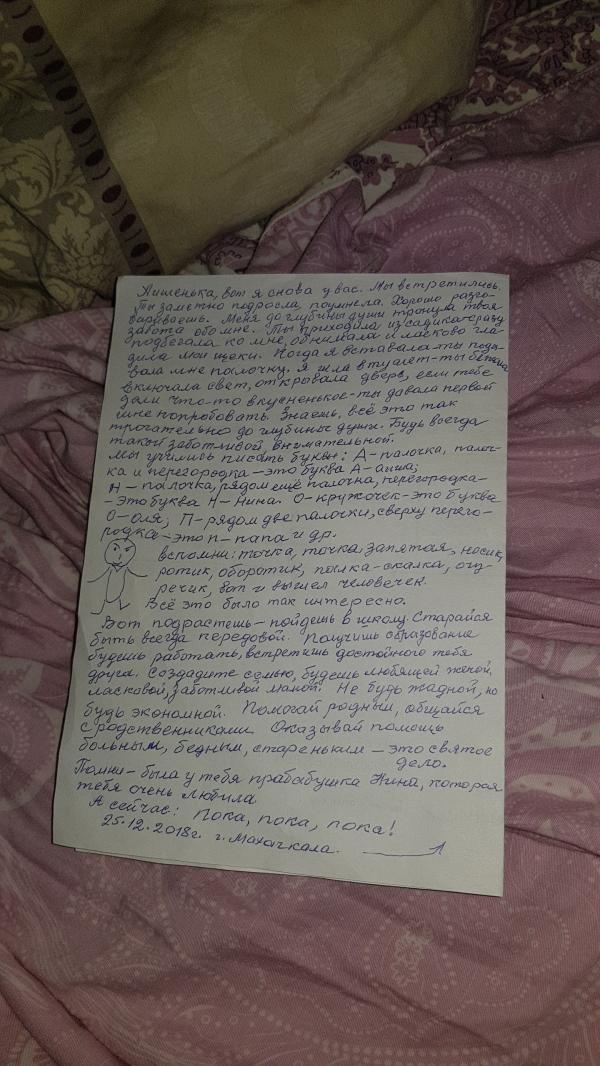 Аишенька, вот я снова у вас. Мы встретились.
Ты заметно подросла, поумнела. Хорошо разго-
вариваешь. Меня до глубины души тронула твоя
забота обо мне. Ты приходила из садика сразу
подбегала ко мне, обнимала и ласково гла-
дила мои щеки. Когда я вставала-ты пода-
вала мне палочку. Я шла в туалет-ты бежала
включала свет, открывала дверь, если тебе
дали что-то вкусненькое-ты давала первой
мне попробовать. Знаешь, всё это так
трогательно до глубины души. Будь всегда
такой заботливой, внимательной.
Мы учились писать буквы: А-палочка, палоч-
ка и перегородка-это буква А-аиша;
Н-палочка, рядом ещё палочка, перегородка-
-это буква Н-Нина. О-кружочек-это буква
О-оля; П-рядом две палочки, сверху перего-
родка-это п-папа и др.
Вспомни: точка, точка, запятая, носик,
ротик, оборотик, палка-скалка, огу-
речик, вот и вышел человечек.
Всё это было так интересно.
Вот подрастешь-пойдешь в школу. Старайся
быть всегда передовой. Получишь образование
будешь работать, встретишь достойного тебя
друга. Создадите семью, будешь любящей женой,
ласковой, заботливой мамой. Не будь жадной, но
будь экономной. Помогай родным, общайся
с родственниками. Оказывай помощь
больным, бедным, стареньким - это святое
дело.
Помни-была у тебя прабабушка Нина, которая
тебя очень любила.
А сейчас: Пока, пока, пока!
25.12.2018г. г. Махачкала.